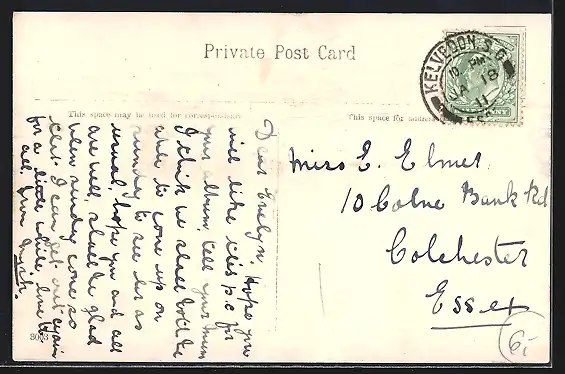 Private Post Card
KELVEDON S.O
10 PM
JA 18
11
ESSEX
This space may be used for correspondence
This space for address
Dear Evelyn Hope you
will like this p.c for
your album tell your mum
I think we shall both be
able to come up on
sunday to see her as
usual, hope you and all
are well, shall be glad
when sunday come so
that I can get out again
for a little while love to
all, from
Miss E. Elmer
10 Colne Bank Rd
Colchester
Essex
3003
6/-